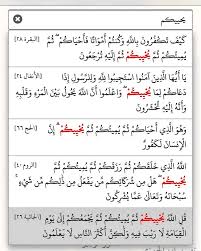 يحييكم
كَيْفَ تَكْفُرُونَ بِاللَّهِ وَكُنْتُمْ أَمْوَاتًا فَأَحْيَاكُمْ ۖ ثُمَّ [البقرة ٢٨]
يُمِيتُكُمْ ثُمَّ يُحْيِيكُمْ ثُمَّ إِلَيْهِ تُرْجَعُونَ
يَا أَيُّهَا الَّذِينَ آمَنُوا اسْتَجِيبُوا لِلَّهِ وَلِلرَّسُولِ إِذَا [الأنفال ٢٤]
دَعَاكُمْ لِمَا يُحْيِيكُمْ ۖ وَاعْلَمُوا أَنَّ اللَّهَ يَحُولُ بَيْنَ الْمَرْءِ وَقَلْبِهِ
وَأَنَّهُ إِلَيْهِ تُحْشَرُونَ
وَهُوَ الَّذِي أَحْيَاكُمْ ثُمَّ يُمِيتُكُمْ ثُمَّ يُحْيِيكُمْ ۗ إِنَّ [الحج ٦٦]
الْإِنْسَانَ لَكَفُورٌ
اللَّهُ الَّذِي خَلَقَكُمْ ثُمَّ رَزَقَكُمْ ثُمَّ يُمِيتُكُمْ ثُمَّ [الروم ٤٠]
يُحْيِيكُمْ ۖ هَلْ مِنْ شُرَكَائِكُمْ مَنْ يَفْعَلُ مِنْ ذَٰلِكُمْ مِنْ شَيْءٍ ۚ
سُبْحَانَهُ وَتَعَالَىٰ عَمَّا يُشْرِكُونَ
قُلِ اللَّهُ يُحْيِيكُمْ ثُمَّ يُمِيتُكُمْ ثُمَّ يَجْمَعُكُمْ إِلَىٰ يَوْمِ [الجاثية ٢٦]
الْقِيَامَةِ لَا رَيْبَ فِيهِ وَلَٰكِنَّ أَكْثَرَ النَّاسِ لَا يَعْلَمُونَ